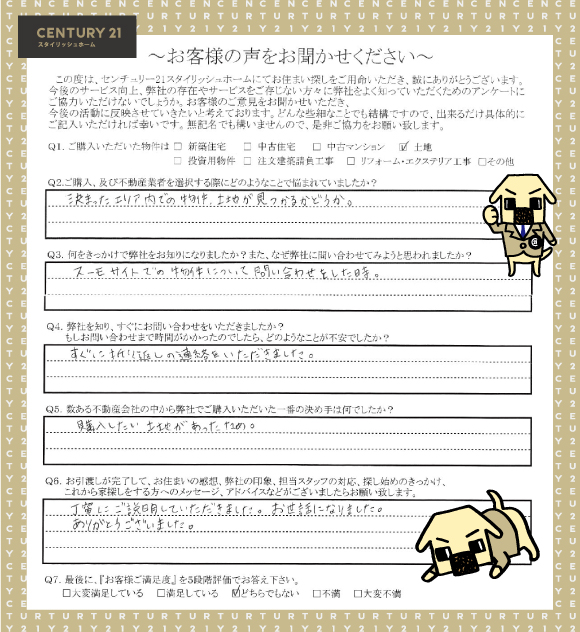 CENTURY 21
スタイリッシュホーム
～お客様の声をお聞かせください～
この度は、センチュリー21スタイリッシュホームにてお住まい探しをご用命いただき、誠にありがとうございます。
今後のサービス向上、弊社の存在やサービスをご存じない方々に弊社をよく知っていただくためのアンケートに
ご協力いただけないでしょうか。お客様のご意見をお聞かせいただき、
今後の活動に反映させていきたいと考えております。どんな些細なことでも結構ですので、出来るだけ具体的に
ご記入いただければ幸いです。無記名でも構いませんので、是非ご協力をお願い致します。
Q1. ご購入いただいた物件は □ 新築住宅 □ 中古住宅 □ 中古マンション ☑ 土地
□ 投資用物件 □ 注文建築請負工事 □ リフォーム・エクステリア工事 □その他
Q2.ご購入、及び不動産業者を選択する際にどのようなことで悩まれていましたか?
決まったエリア内での物件、土地が見つかるかどうか。
Q3. 何をきっかけで弊社をお知りになりましたか?また、なぜ弊社に問い合わせてみようと思われましたか?
スーモサイトでの物件について問い合わせをした時。
Q4. 弊社を知り、すぐにお問い合わせをいただきましたか?
もしお問い合わせまで時間がかかったのでしたら、どのようなことが不安でしたか?
すぐに折り返しの連絡をいただきました。
Q5. 数ある不動産会社の中から弊社でご購入いただいた一番の決め手は何でしたか?
購入したい土地があったため。
Q6. お引渡しが完了して、お住まいの感想、弊社の印象、担当スタッフの対応、探し始めのきっかけ、
これから家探しをする方へのメッセージ、アドバイスなどがございましたらお願い致します。
丁寧にご説明していただきました。お世話になりました。
ありがとうございました。
Q7. 最後に、『お客様ご満足度』を5段階評価でお答え下さい。
□大変満足している □満足している ☑どちらでもない □不満 □大変不満